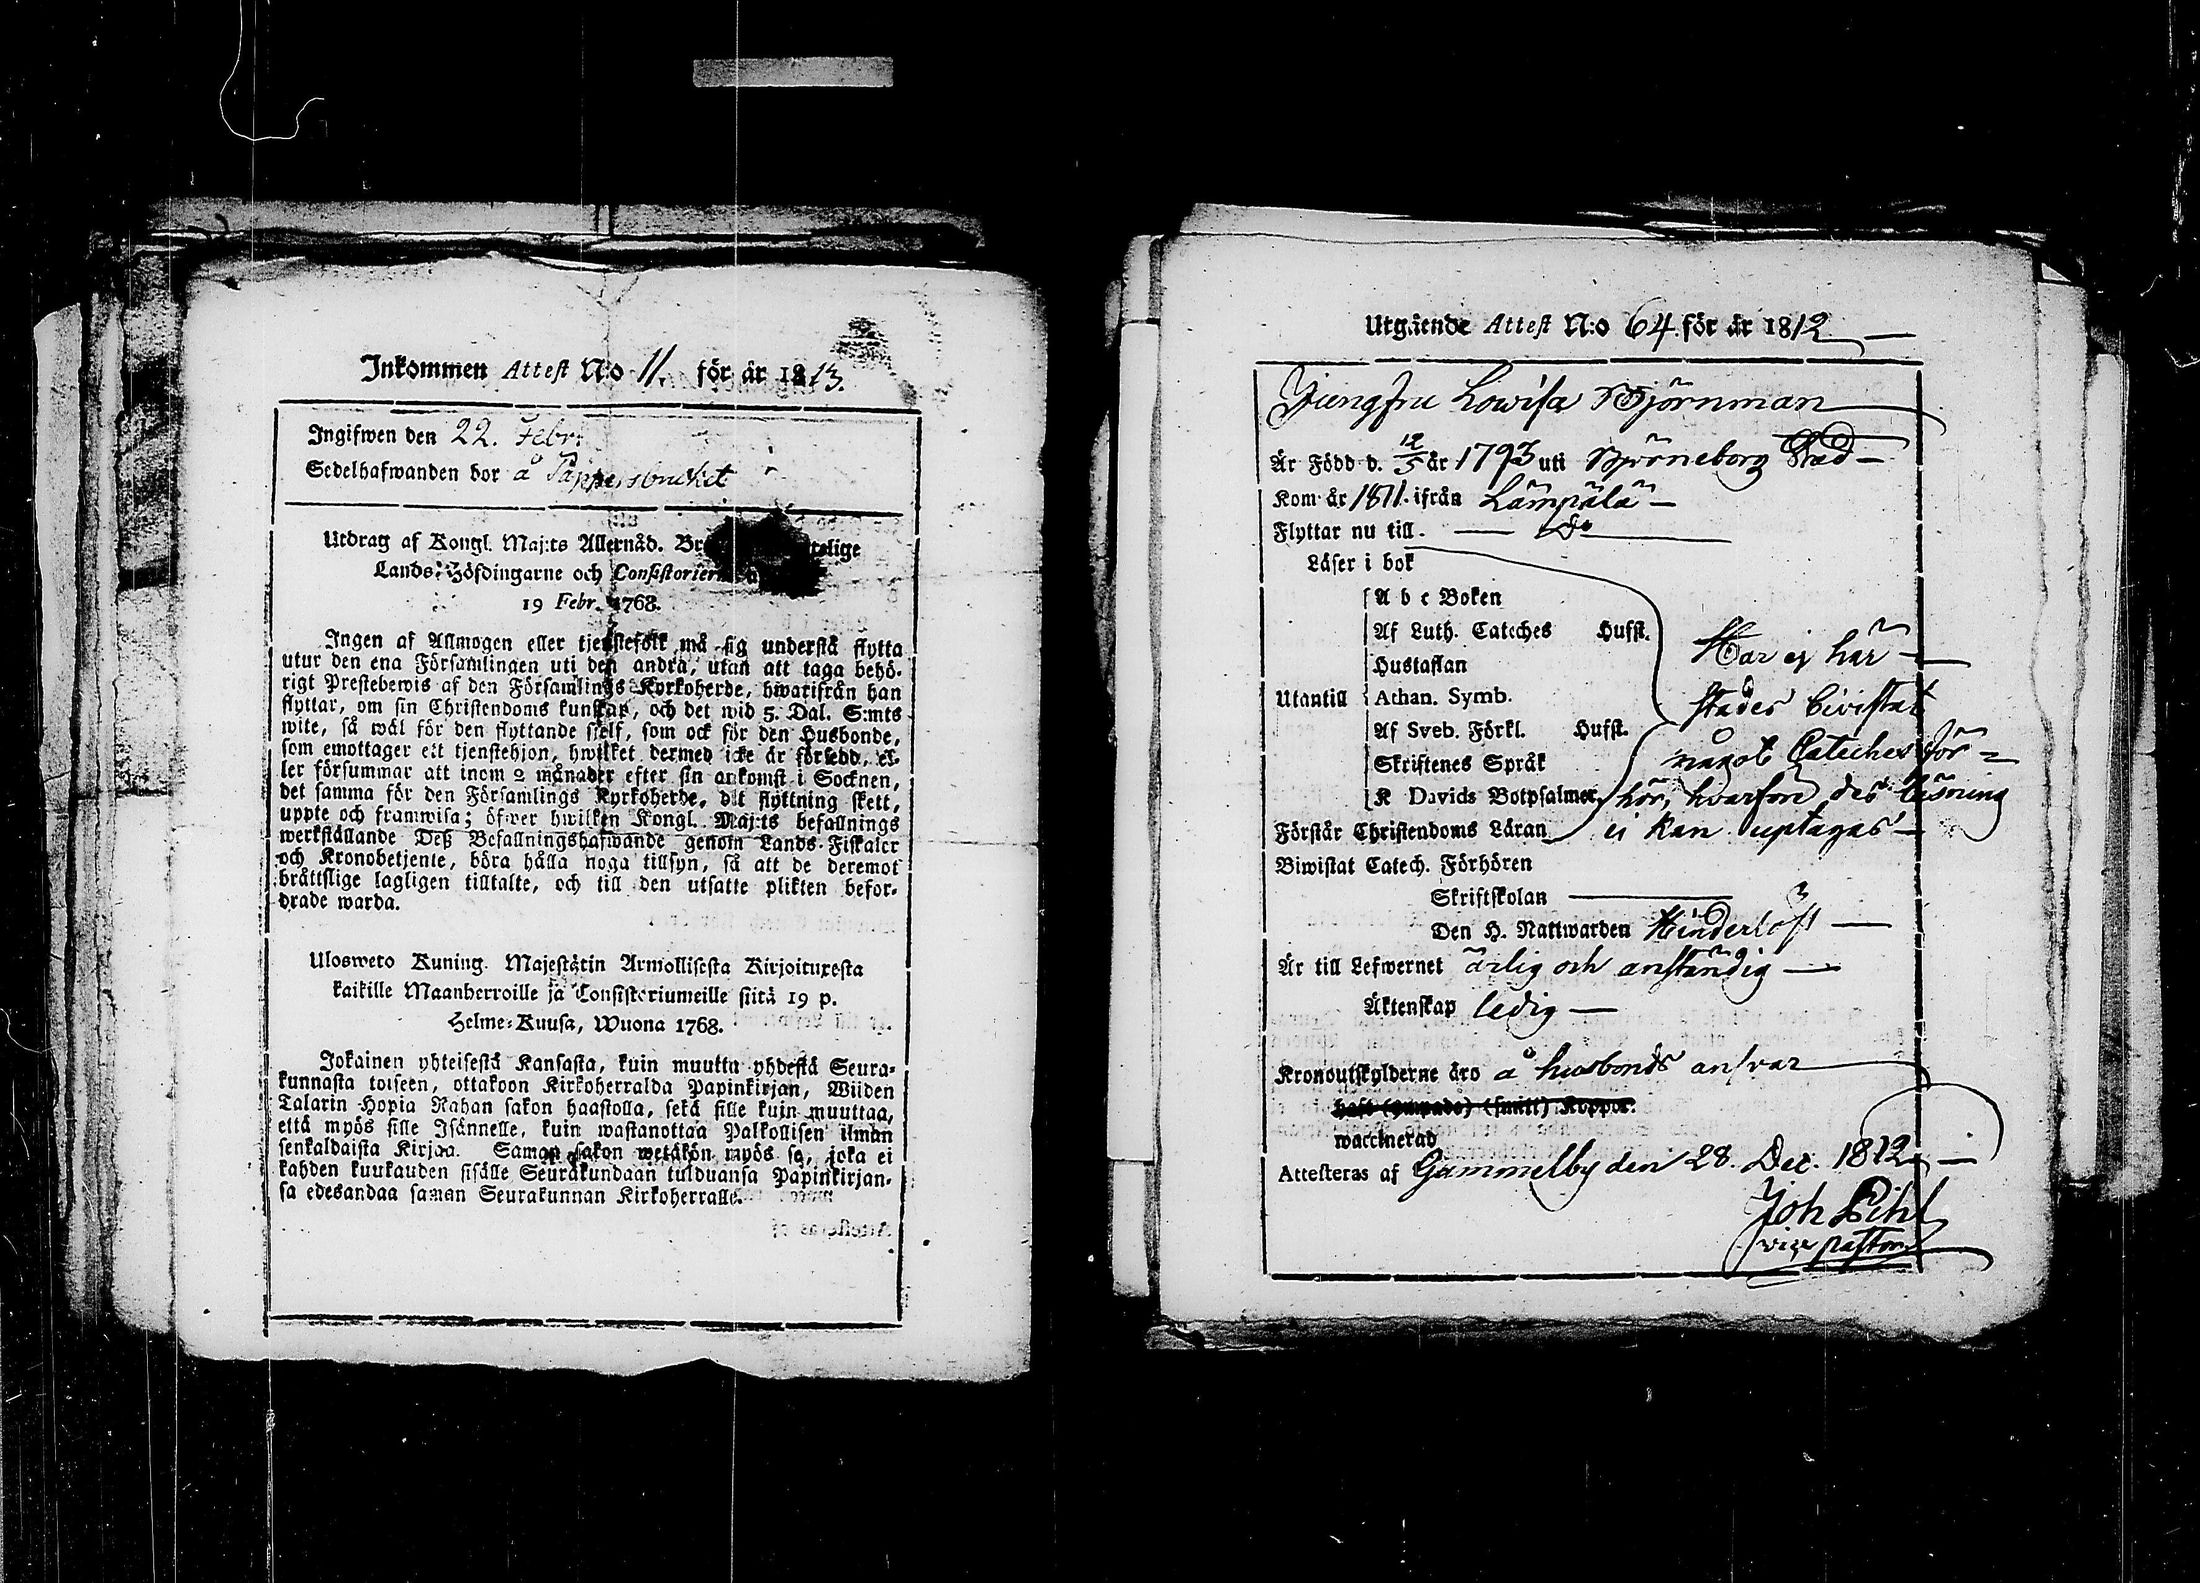 Inkommen Attest N:o 11. för år 1813.
Ingifwen den 22. Febr:
Sedelhafwanden bor å Pappersbruket
Utdrag af Kongl. Maj:ts Allernåd. Br telige
Lands-Höfdingarne och Consistorierne
19 Febr. 1768.
Ingen af Allmogen eller tjenstefolk må sig understå flytta
utur den ena Församlingen uti den andra, utan att taga behö-
rigt Prestebewis af den Församlings Kyrkoherde, hwarifrån han
flyttar, om sin Christendoms kunskap, och det wid 5. Dal. S:mts
wite, så wäl för den flyttande sjelf, som ock för den Husbonde,
som emottager ett tjenstehjon, hwilket dermed icke är försedd, el-
ler försummar att inom 2 månader efter sin ankomst i Socknen,
det samma för den Församlings Kyrkoherde, dit flyttning skett,
uppte och framwisa; öfwer hwilken Kongl. Maj:ts befallnings
werkställande Deß Befallningshafwande genom Lands-Fiskaler
och Kronobetjente, böra hålla noga tillsyn, så att de deremot
bråttslige lagligen tilltalte, och till den utsatte plikten befor-
drade warda.
Ulosweto Kuning. Majestätin Armollisesta Kirjoituxesta
kaikille Maanherroille ja Consistoriumeille siitä 19 p.
Helme-Kuusa, Wuona 1768.
Jokainen yhteisestä Kansasta, kuin muutta yhdestä Seura-
kunnasta toiseen, ottakoon Kirkoherralda Papinkirjan, Wiiden
Talarin Hopia Rahan sakon haastolla, sekä sille kuin muuttaa,
että myös sille Isännelle, kuin wastanottaa Palkollisen ilman
senkaldaista Kirjaa. Saman sakon wetäkön myös se, joka ei
kahden kuukauden sisälle Seurakundaan tulduansa Papinkirjan-
sa edesandaa saman Seurakunnan Kirkoherralle.
Utgående Attest N:o 64 för år 1812
Jungfru Lowisa Björnman
Är Född d. 12/5 år 1793 uti Björneborg Stad
Kom år 1811. ifrån Lämpälä
Flyttar nu till. D:o
Läser i bok
A b c Boken
Af Luth. Cateches Husst.
Hustaflan
Utantill Athan. Symb.
Af Sveb. Förkl. Husst.
Skriftenes Språk
K Davids Botpsalmer
Har ej här
städes biwistat
något Cateches för=
hör, hvarföre des läsning
ei kan uptagas
Förstår Christendoms Läran
Biwistat Catech. Förhören
Skriftskolan
Den H. Nattwarden Hinderlöst
Är till Lefwernet ärlig och anständig
Äktenskap ledig
Kronoutskylderne äro å husbonds ansvar
haft (ympade) (smitt) Koppor.
waccinerad
Attesteras af Gammelby den 28. Dec. 1812
Joh Pihl
vice pastor